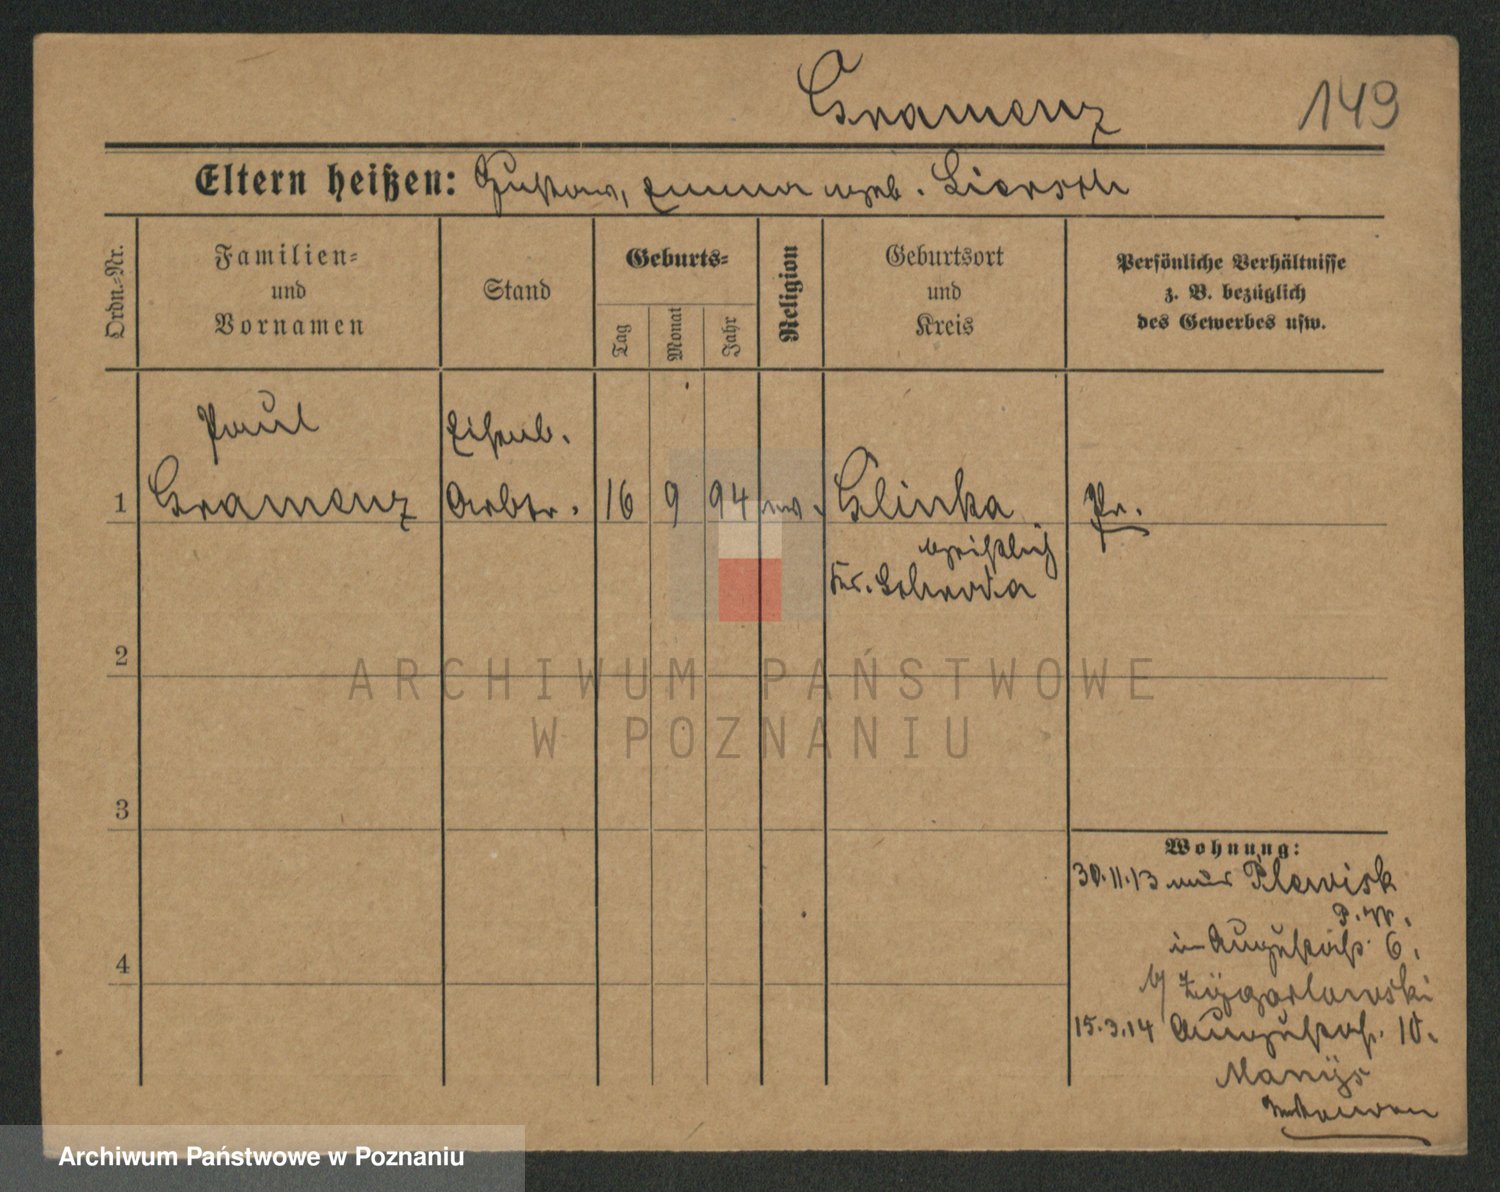 Gramenz 149
Eltern heißen: Gustav, Emma geb. Liersch
Ordn.-Nr.
Familien-
und
Vornamen
Stand
Geburts-
Tag
Monat
Jahr
Religion
Geburtsort
und
Kreis
Persönliche Verhältnisse
z. B. bezüglich
des Gewerbes usw.
Paul
Eisenb.
1 Gramenz Arbtr. 16 9 94 ev. Glinka Pr.
Kr. Schroda
2
3
4
ARCHIWUM PAŃSTWOWE
W POZNANIU
Wohnung:
30.11.13 aus Plewisk
P.W.
in Augustastr. 6.
b/ Zÿgarlowski
15.3.14 Augustastr. 10.
Manÿs
Archiwum Państwowe w Poznaniu